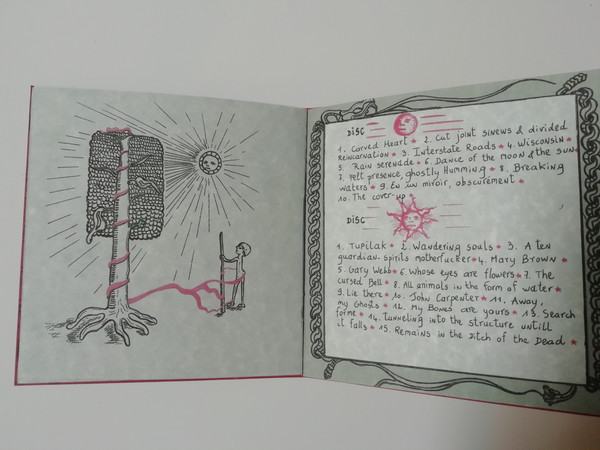 DISC
1. Carved Heart ★ 2. Cut joint sinews & divided
Reincarnation ★ 3. Interstate Roads ★ 4. Wisconsin ★
5. Rain serenade ★ 6. Dance of the moon & the sun ★
7. Felt presence, ghostly Humming ★ 8. Breaking
waters ★ 9. En un miroir, obscurement ★
10. The cover-up ★
DISC
1. Tupilak ★ 2. Wandering souls ★ 3. A ten
guardian-spirits motherfucker ★ 4. Mary Brown ★
5. Gary Webb ★ 6. Whose eyes are flowers ★ 7. The
cursed Bell ★ 8. All animals in the form of water ★
9. Lie there ★ 10. John Carpenter ★ 11. Away,
my Ghosts ★ 12. My Bones are yours ★ 13. Search
for me ★ 14. Tunneling into the structure untill
it falls ★ 15. Remains in the Ditch of the Dead ★